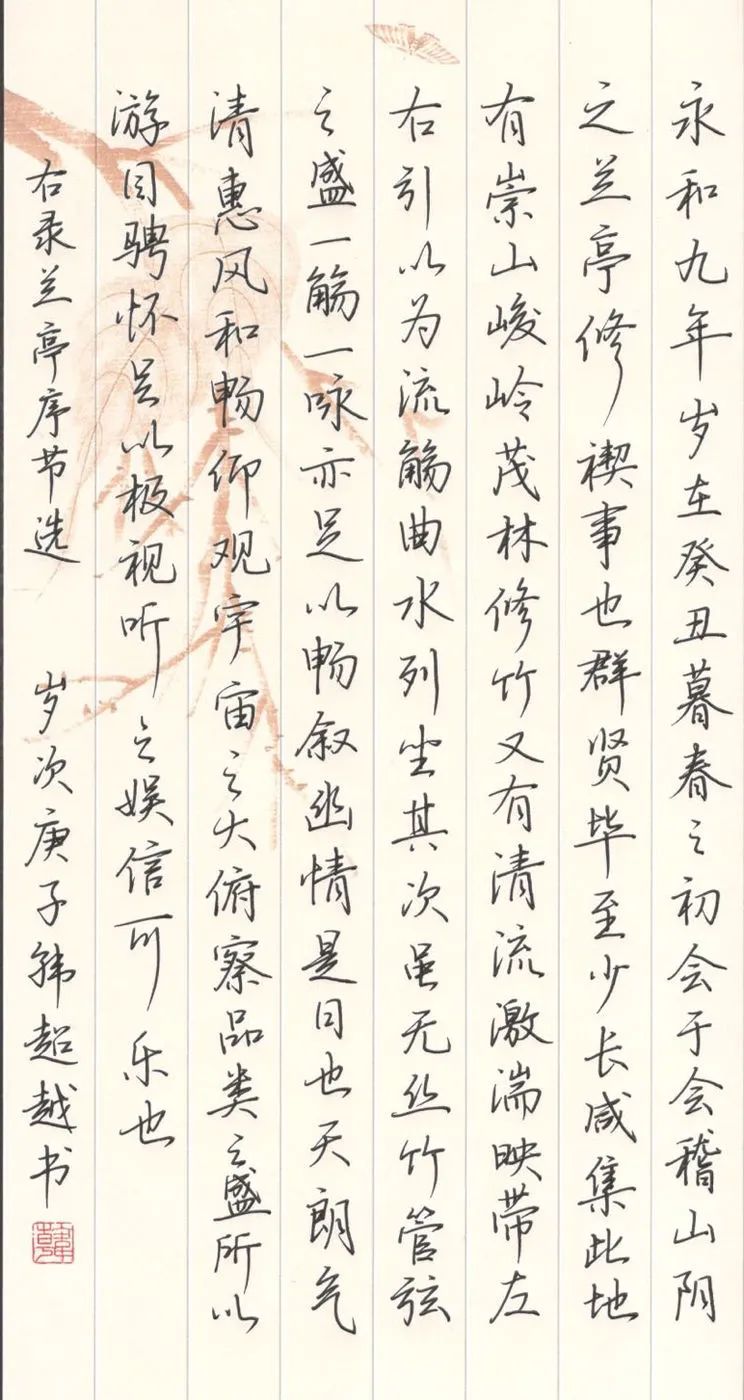 永和九年岁在癸丑暮春之初会于会稽山阴
之兰亭修禊事也群贤毕至少长咸集此地
有崇山峻岭茂林修竹又有清流激湍映带左
右引以为流觞曲水列坐其次虽无丝竹管弦
之盛一觞一咏亦足以畅叙幽情是日也天朗气
清惠风和畅仰观宇宙之大俯察品类之盛所以
游目骋怀足以极视听之娱信可乐也
右录兰亭序节选 岁次庚子韩超越书